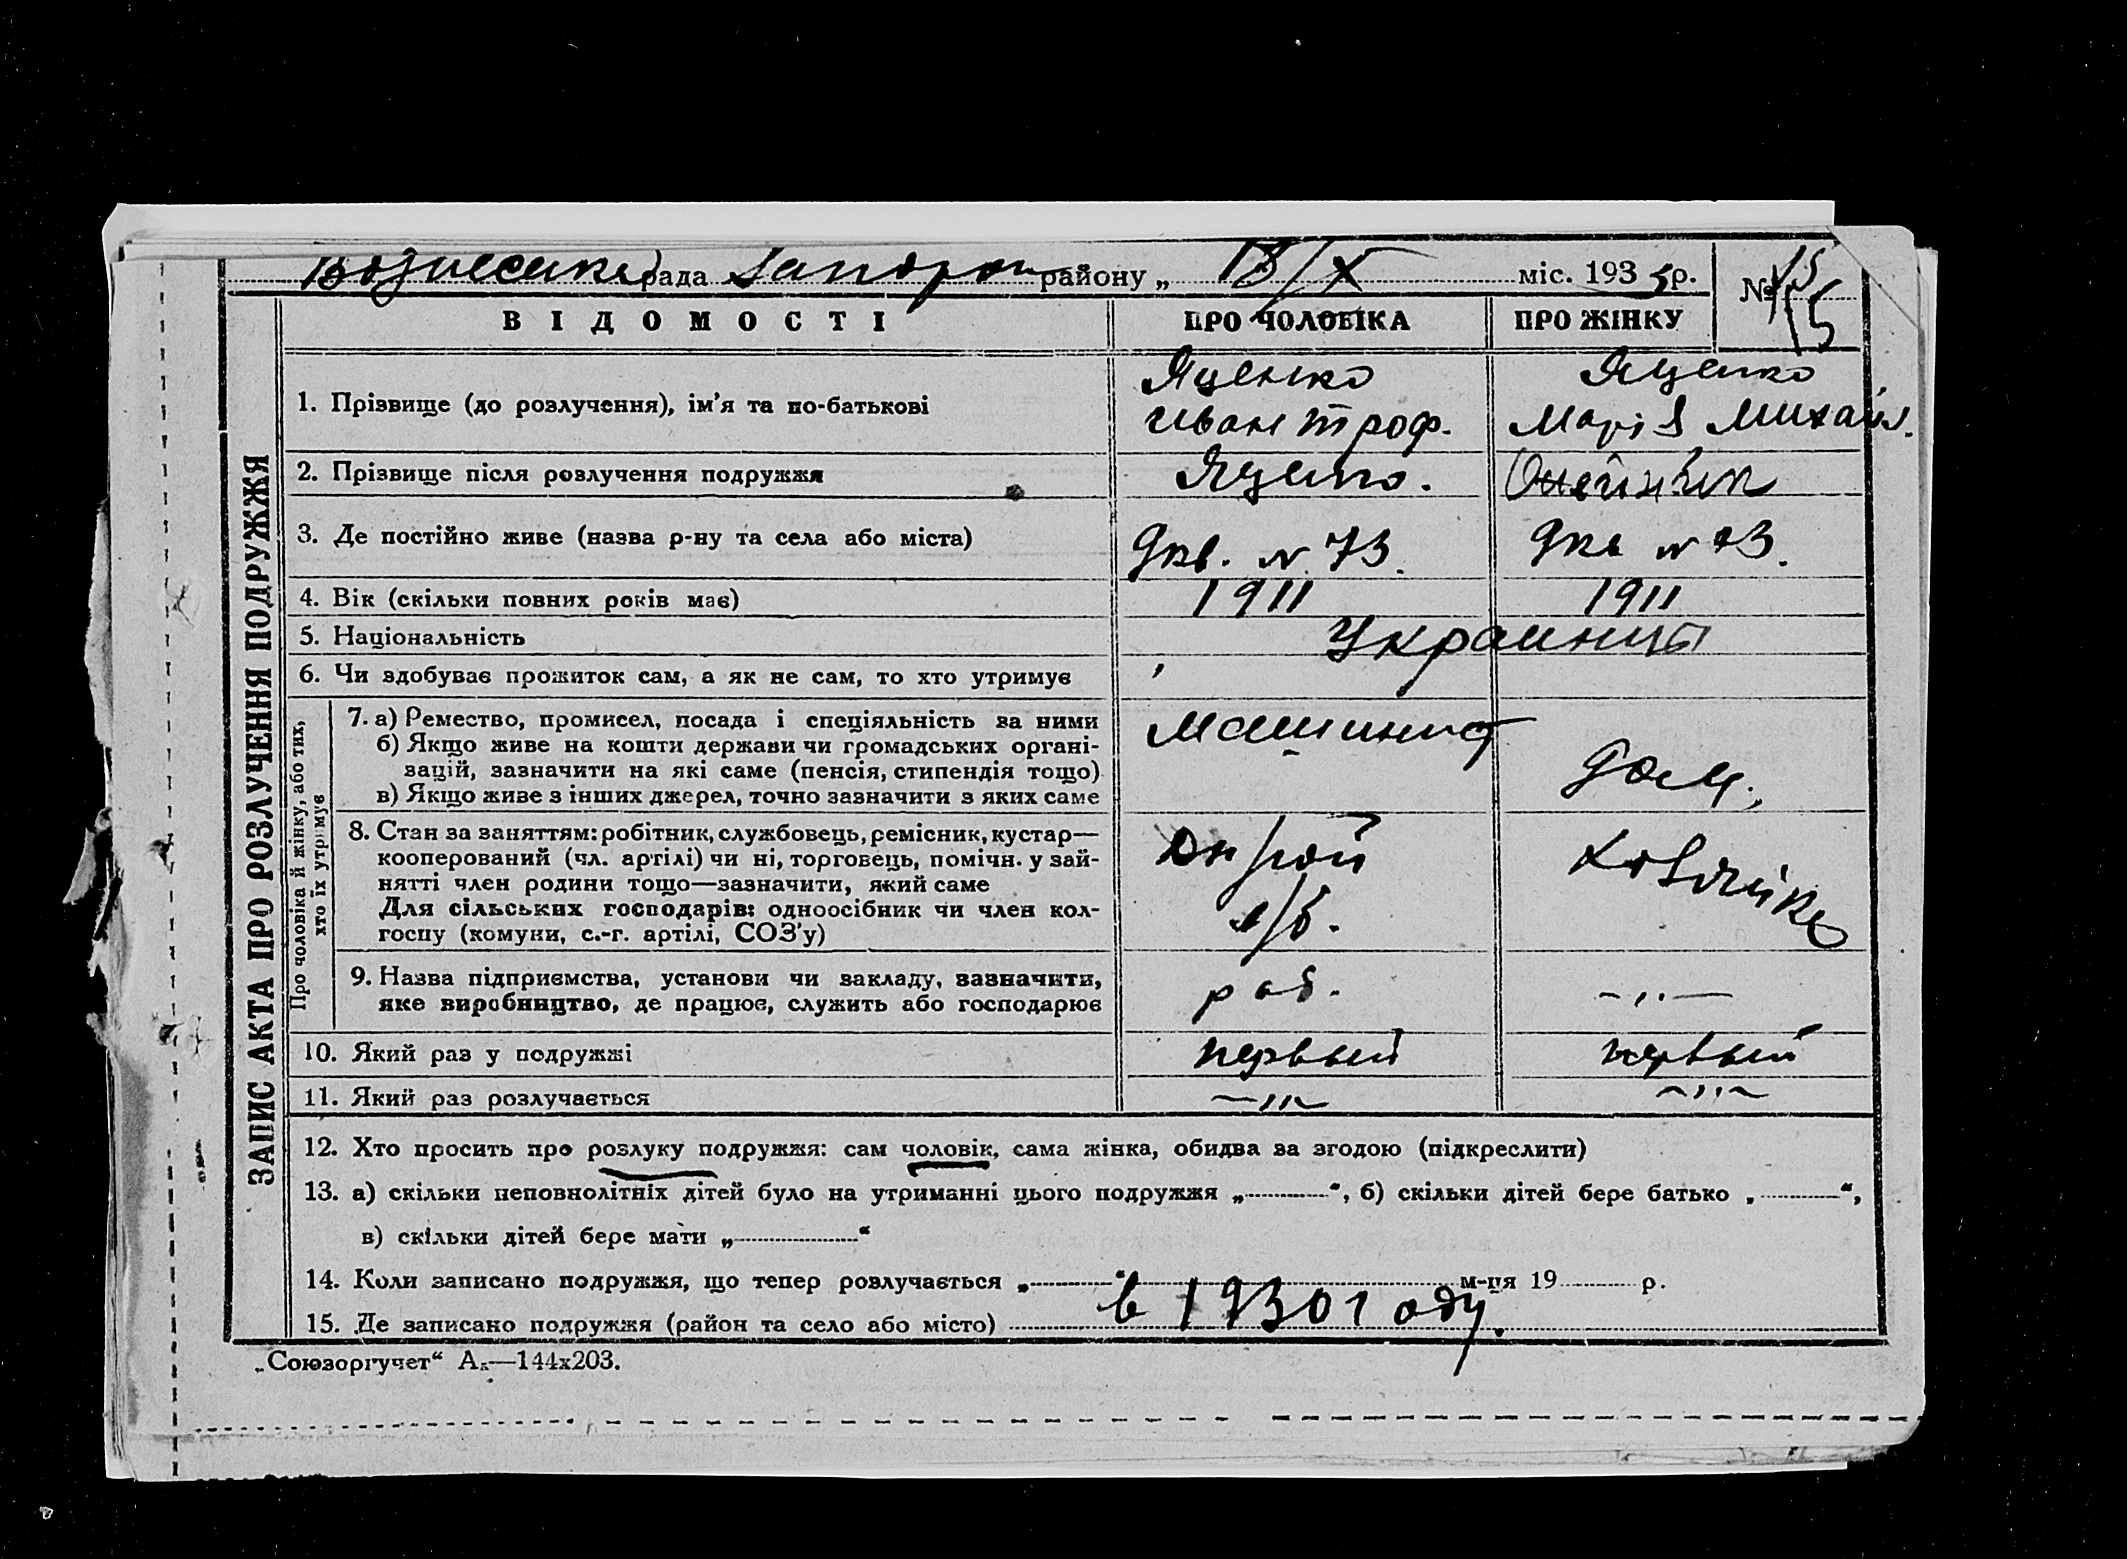 Вознесенка рада Запорож району „ 18/X міс. 1935 р.
№ 15
ВІДОМОСТІ ПРО ЧОЛОВІКА ПРО ЖІНКУ
ЗАПИС АКТА ПРО РОЗЛУЧЕННЯ ПОДРУЖЖЯ
1. Прізвище (до розлучення), ім’я та по-батькові
Яценко
Иван Троф.
Яценко
Марія Михайл.
2. Прізвище після розлучення подружжя Яценко. Олейник
3. Де постійно живе (назва р-ну та села або міста) Дкв. N 73. Дкв N 73.
4. Вік (скільки повних років має) 1911 1911
5. Національність Украинцы
6. Чи здобуває прожиток сам, а як не сам, то хто утримує
Про чоловіка й жінку, або тих,
хто їх утримує
7. а) Ремество, промисел, посада і спеціяльність за ними
б) Якщо живе на кошти держави чи громадських органі-
зацій, зазначити на які саме (пенсія, стипендія тощо)
в) Якщо живе з інших джерел, точно зазначити з яких саме
Машинист
дом.
8. Стан за заняттям: робітник, службовець, ремісник, кустар—
кооперований (чл. артілі) чи ні, торговець, помічн. у зай-
нятті член родини тощо—зазначити, який саме
Для сільських господарів: одноосібник чи член кол-
госпу (комуни, с.-г. артілі, СОЗ’у)
9. Назва підприємства, установи чи закладу, зазначити,
яке виробництво, де працює, служить або господарює
раб. —〃—
10. Який раз у подружжі первый первый
11. Який раз розлучається —〃— —〃—
12. Хто просить про розлуку подружжя: сам чоловік, сама жінка, обидва за згодою (підкреслити)
13. а) скільки неповнолітніх дітей було на утриманні цього подружжя „......“, б) скільки дітей бере батько „......“,
в) скільки дітей бере мати „......“
14. Коли записано подружжя, що тепер розлучається „......“ ...... м-ця 19...... р.
в 1930 году.
15. Де записано подружжя (район та село або місто)
„Союзоргучет“ А₅—144x203.